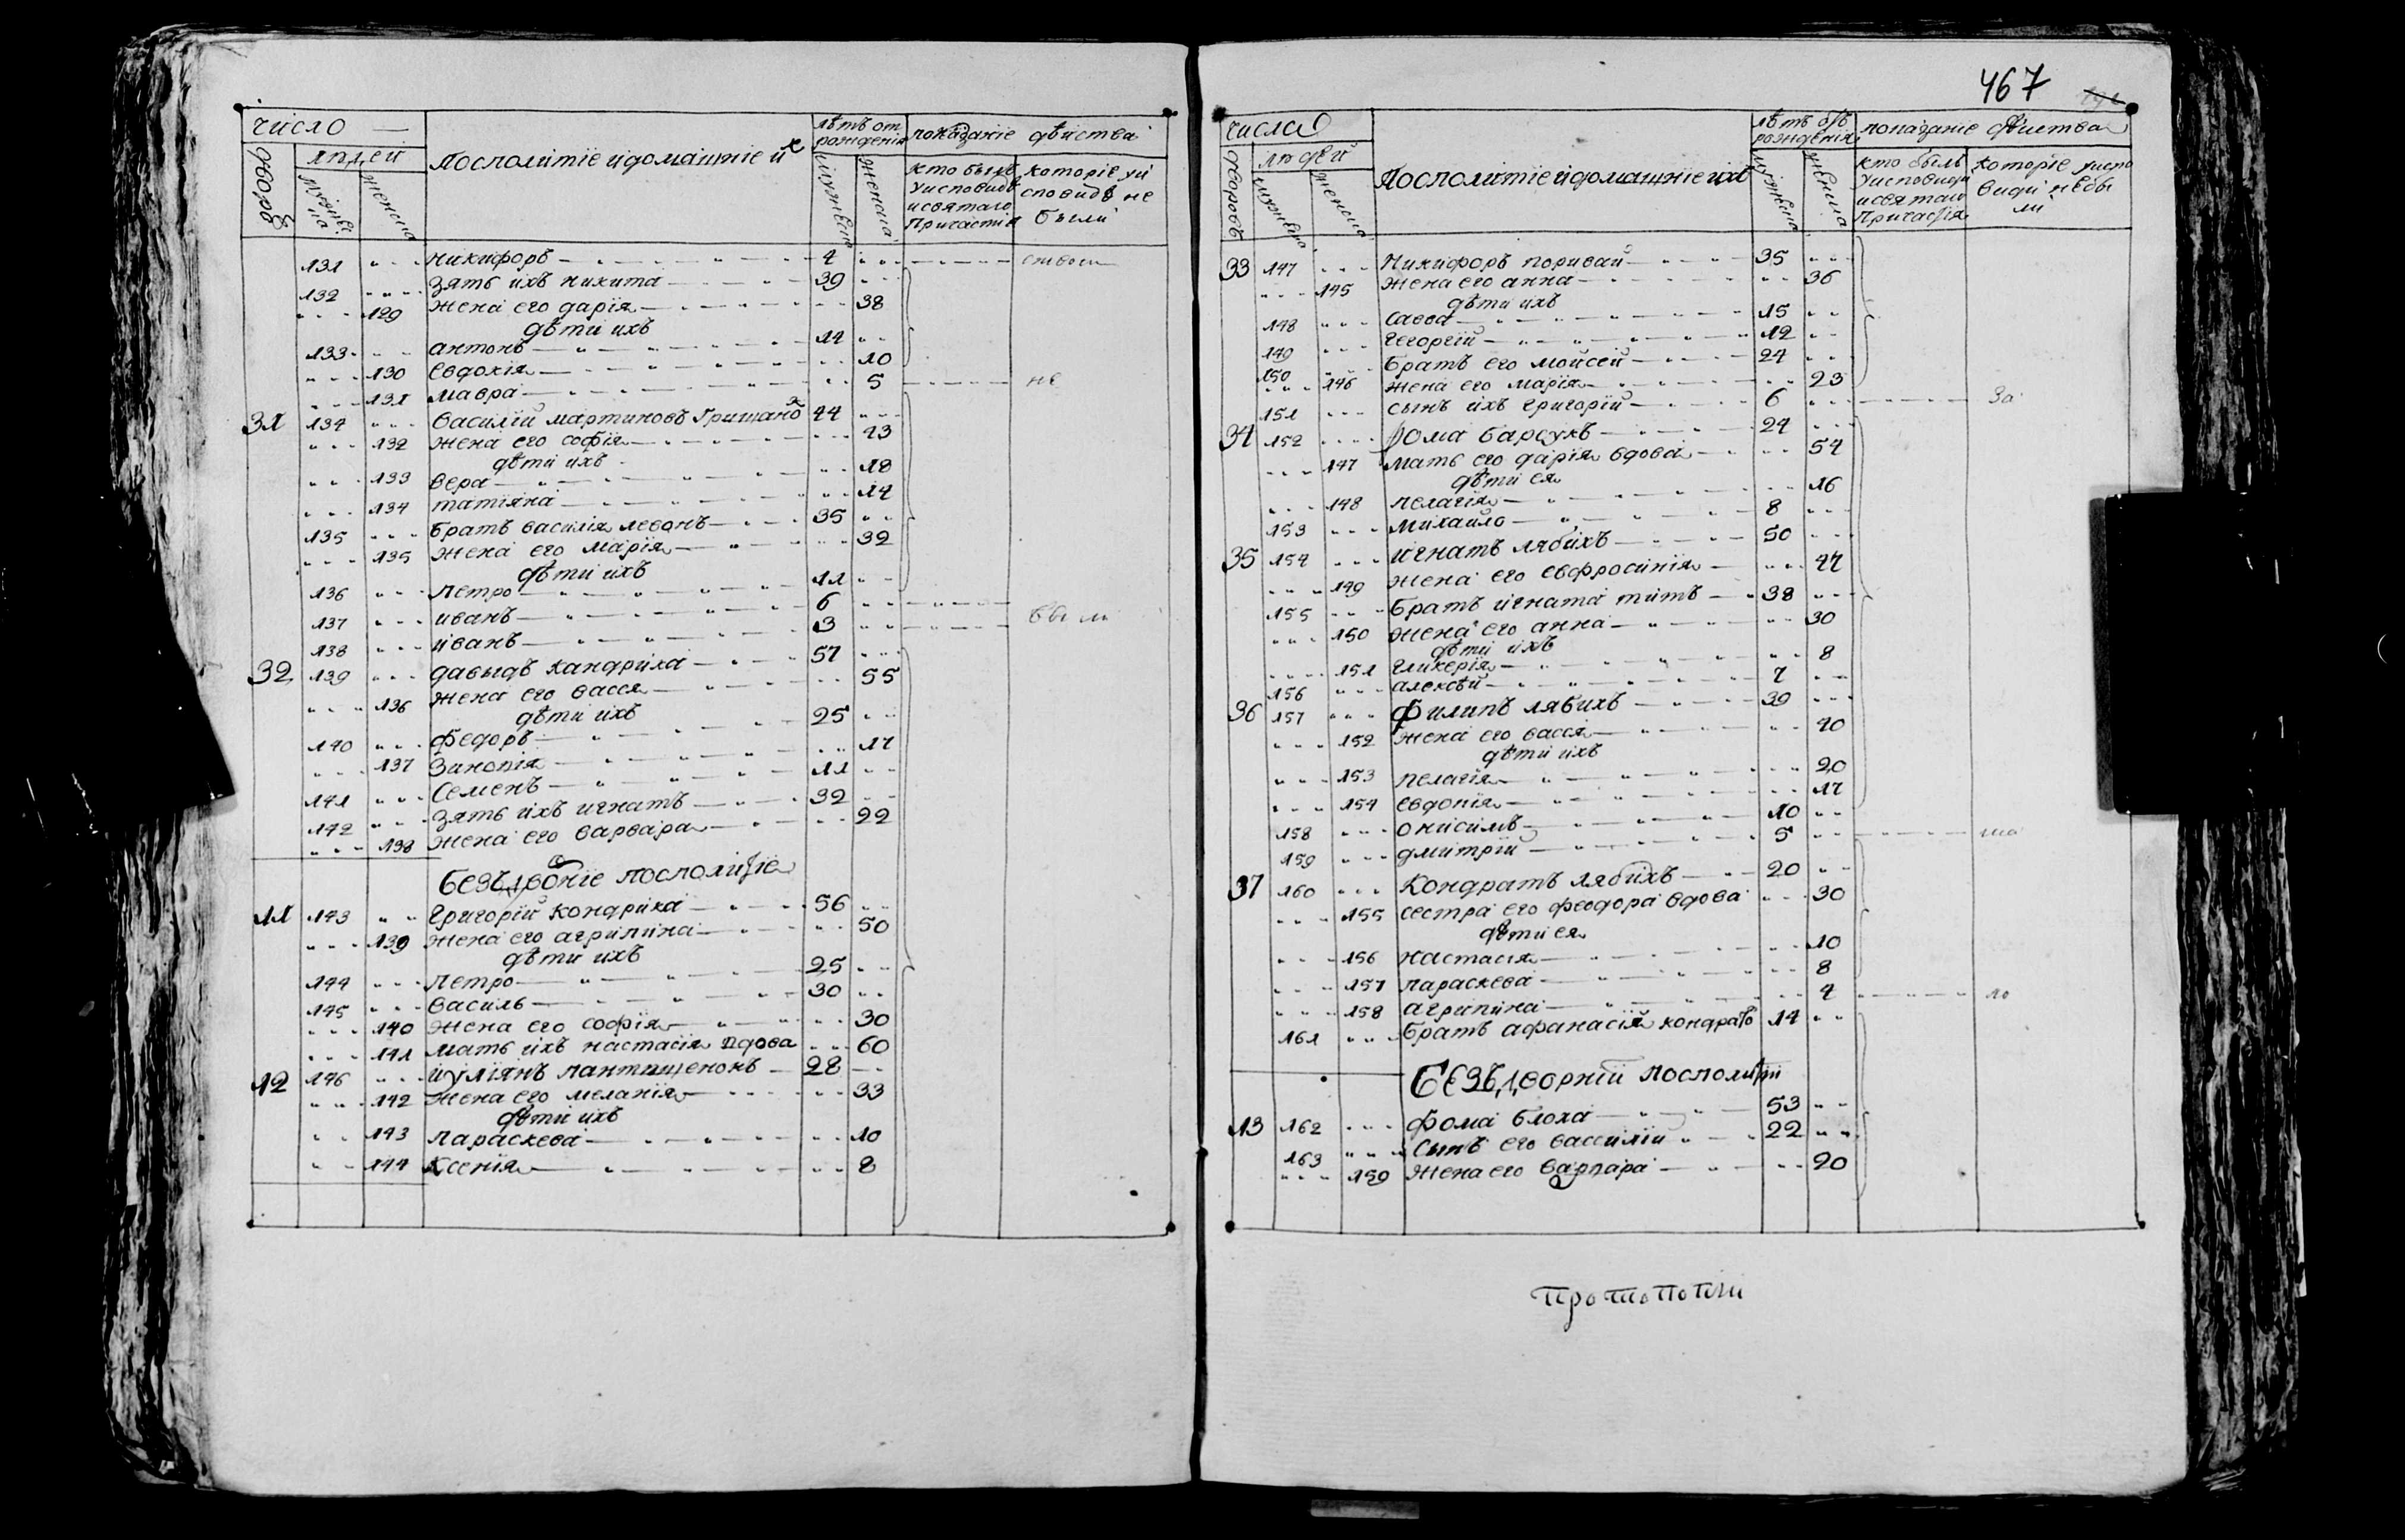 число
людей
дворовъ
мужеска
женска
Посполитіе и домашніе их
лѣтъ от рожденія
мужеска
женска
показаніе дѣйства
кто былъ у исповиди и святаго Причастія
которіе у исповидѣ не были
131 никифоръ 4
132 зять ихъ никита 39
129 жена его дарія 38
дѣти ихъ
133 антонъ 14
130 евдокія 10
131 мавра 5 не
31 134 василій мартиновъ Грищанко 44
132 жена его софія 43
дѣти ихъ
133 вера 18
134 татіяна 14
135 братъ василія левонъ 35
135 жена его марія 32
дѣти ихъ
136 петро 11
137 иванъ 6
138 иванъ 3 были
32 139 давыдъ кандрика 57
136 жена его васся 55
дѣти ихъ
140 федоръ 25
137 Зиновія 17
141 семенъ 11
142 зять ихъ игнатъ 32
138 жена его варвара 22
безъдворніе посполитіе
11 143 григорій кондрика 56
139 жена его агрипина 50
дѣти ихъ
144 петро 25
145 василь 30
140 жена его софія 30
141 мать ихъ настасія вдова 60
12 146 иуліянъ пантищенокъ 28
142 жена его меланія 33
дѣти ихъ
143 параскева 10
144 ксенія 8
467
числа
людей
дворовъ
мужеска
женска
Посполитіе и домашніе ихъ
лѣтъ отъ рожденія
мужеска
женска
показаніе дѣйства
кто былъ у исповиди и святаго Причастія
которіе у исповиди не были
33 147 Никифоръ поривай 35
145 жена его анна 36
дѣти ихъ
148 савва 15
149 георгій 12
150 братъ его мойсей 24
146 жена его марія 23
151 сынъ ихъ григорій 6 за
34 152 фома барсукъ 24
147 мать его дарія вдова 54
дѣти ея
148 пелагія 16
153 михайло 8
35 154 игнатъ лябихъ 50
149 жена его евфросинія 44
155 братъ игната титъ 38
150 жена его анна 30
дѣти ихъ
151 гликерія 8
156 алексѣй 7
36 157 филипъ лябихъ 39
152 жена его васся 40
дѣти ихъ
153 пелагія 20
154 евдокія 17
158 онисимъ 10
159 дмитрій 5
37 160 Кондратъ лябихъ 20
155 сестра его феодора вдова 30
дѣти ея
156 настасія 10
157 параскева 8
158 агрипина 4 ло
161 братъ афанасій кондрато 14
Безъдворній посполитіи
13 162 фома блоха 53
163 сынъ его вассилій 22
159 жена его варвара 20
протопопій